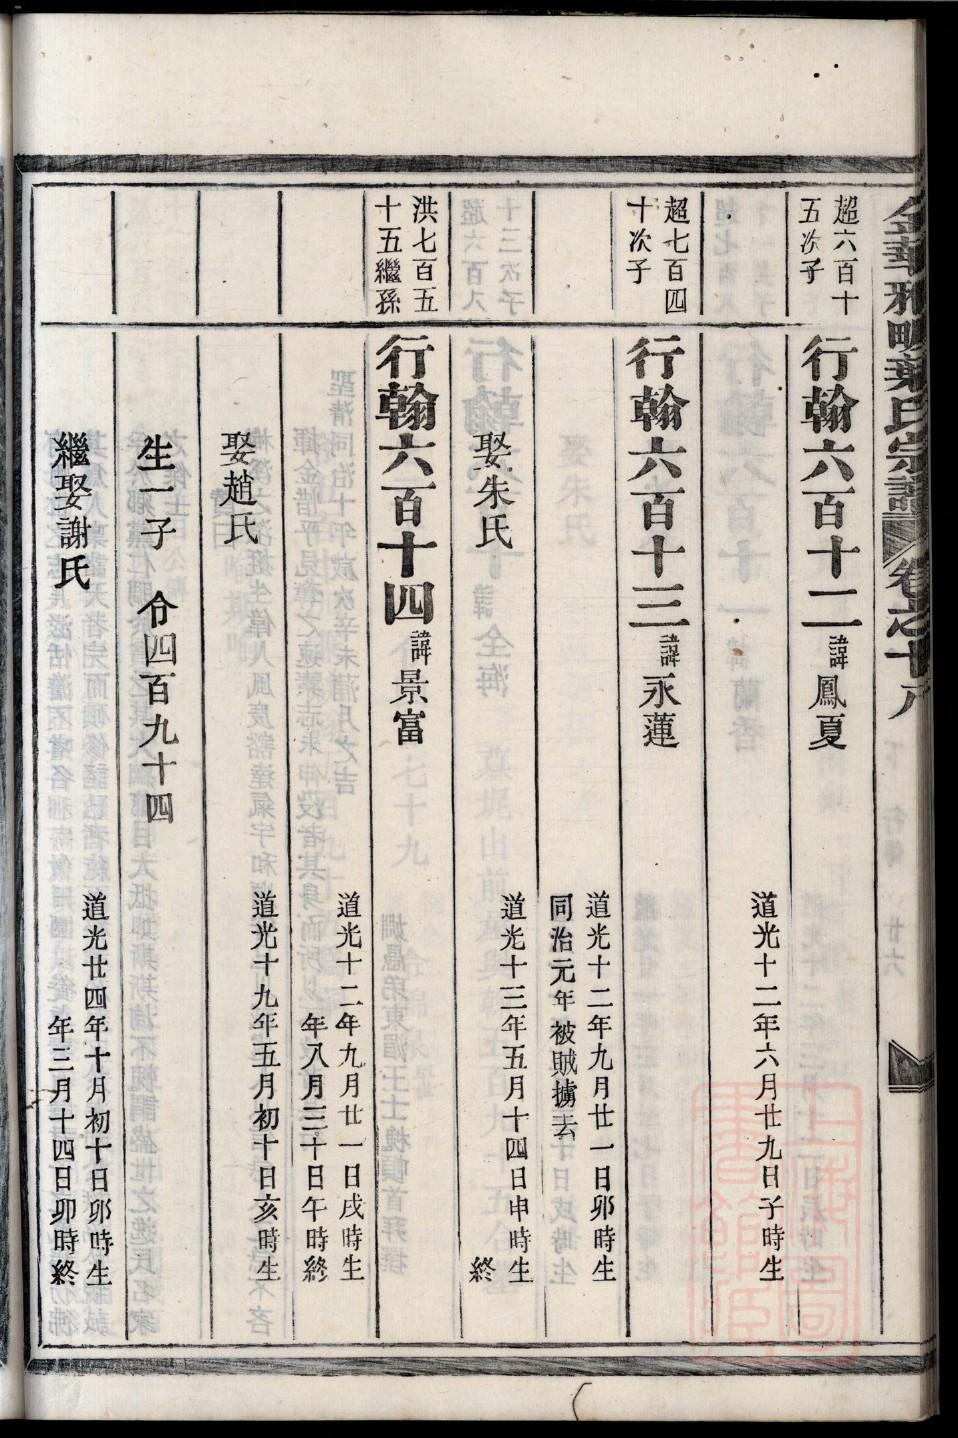 金華雅畈葉氏宗譜 卷之十八
超六百十
五次子
行翰六百十二 諱鳳夏
道光十二年六月廿九日子時生
超七百四
十次子
行翰六百十三 諱永蓮
道光十二年九月廿一日卯時生
同治元年被賊擄去
娶朱氏
道光十三年五月十四日申時生
終
洪七百五
十五繼孫
行翰六百十四 諱景富
道光十二年九月廿一日戌時生
年八月三十日午時終
娶趙氏
道光十九年五月初十日亥時生
生一子 令四百九十四
繼娶謝氏
道光廿四年十月初十日卯時生
年三月十四日卯時終